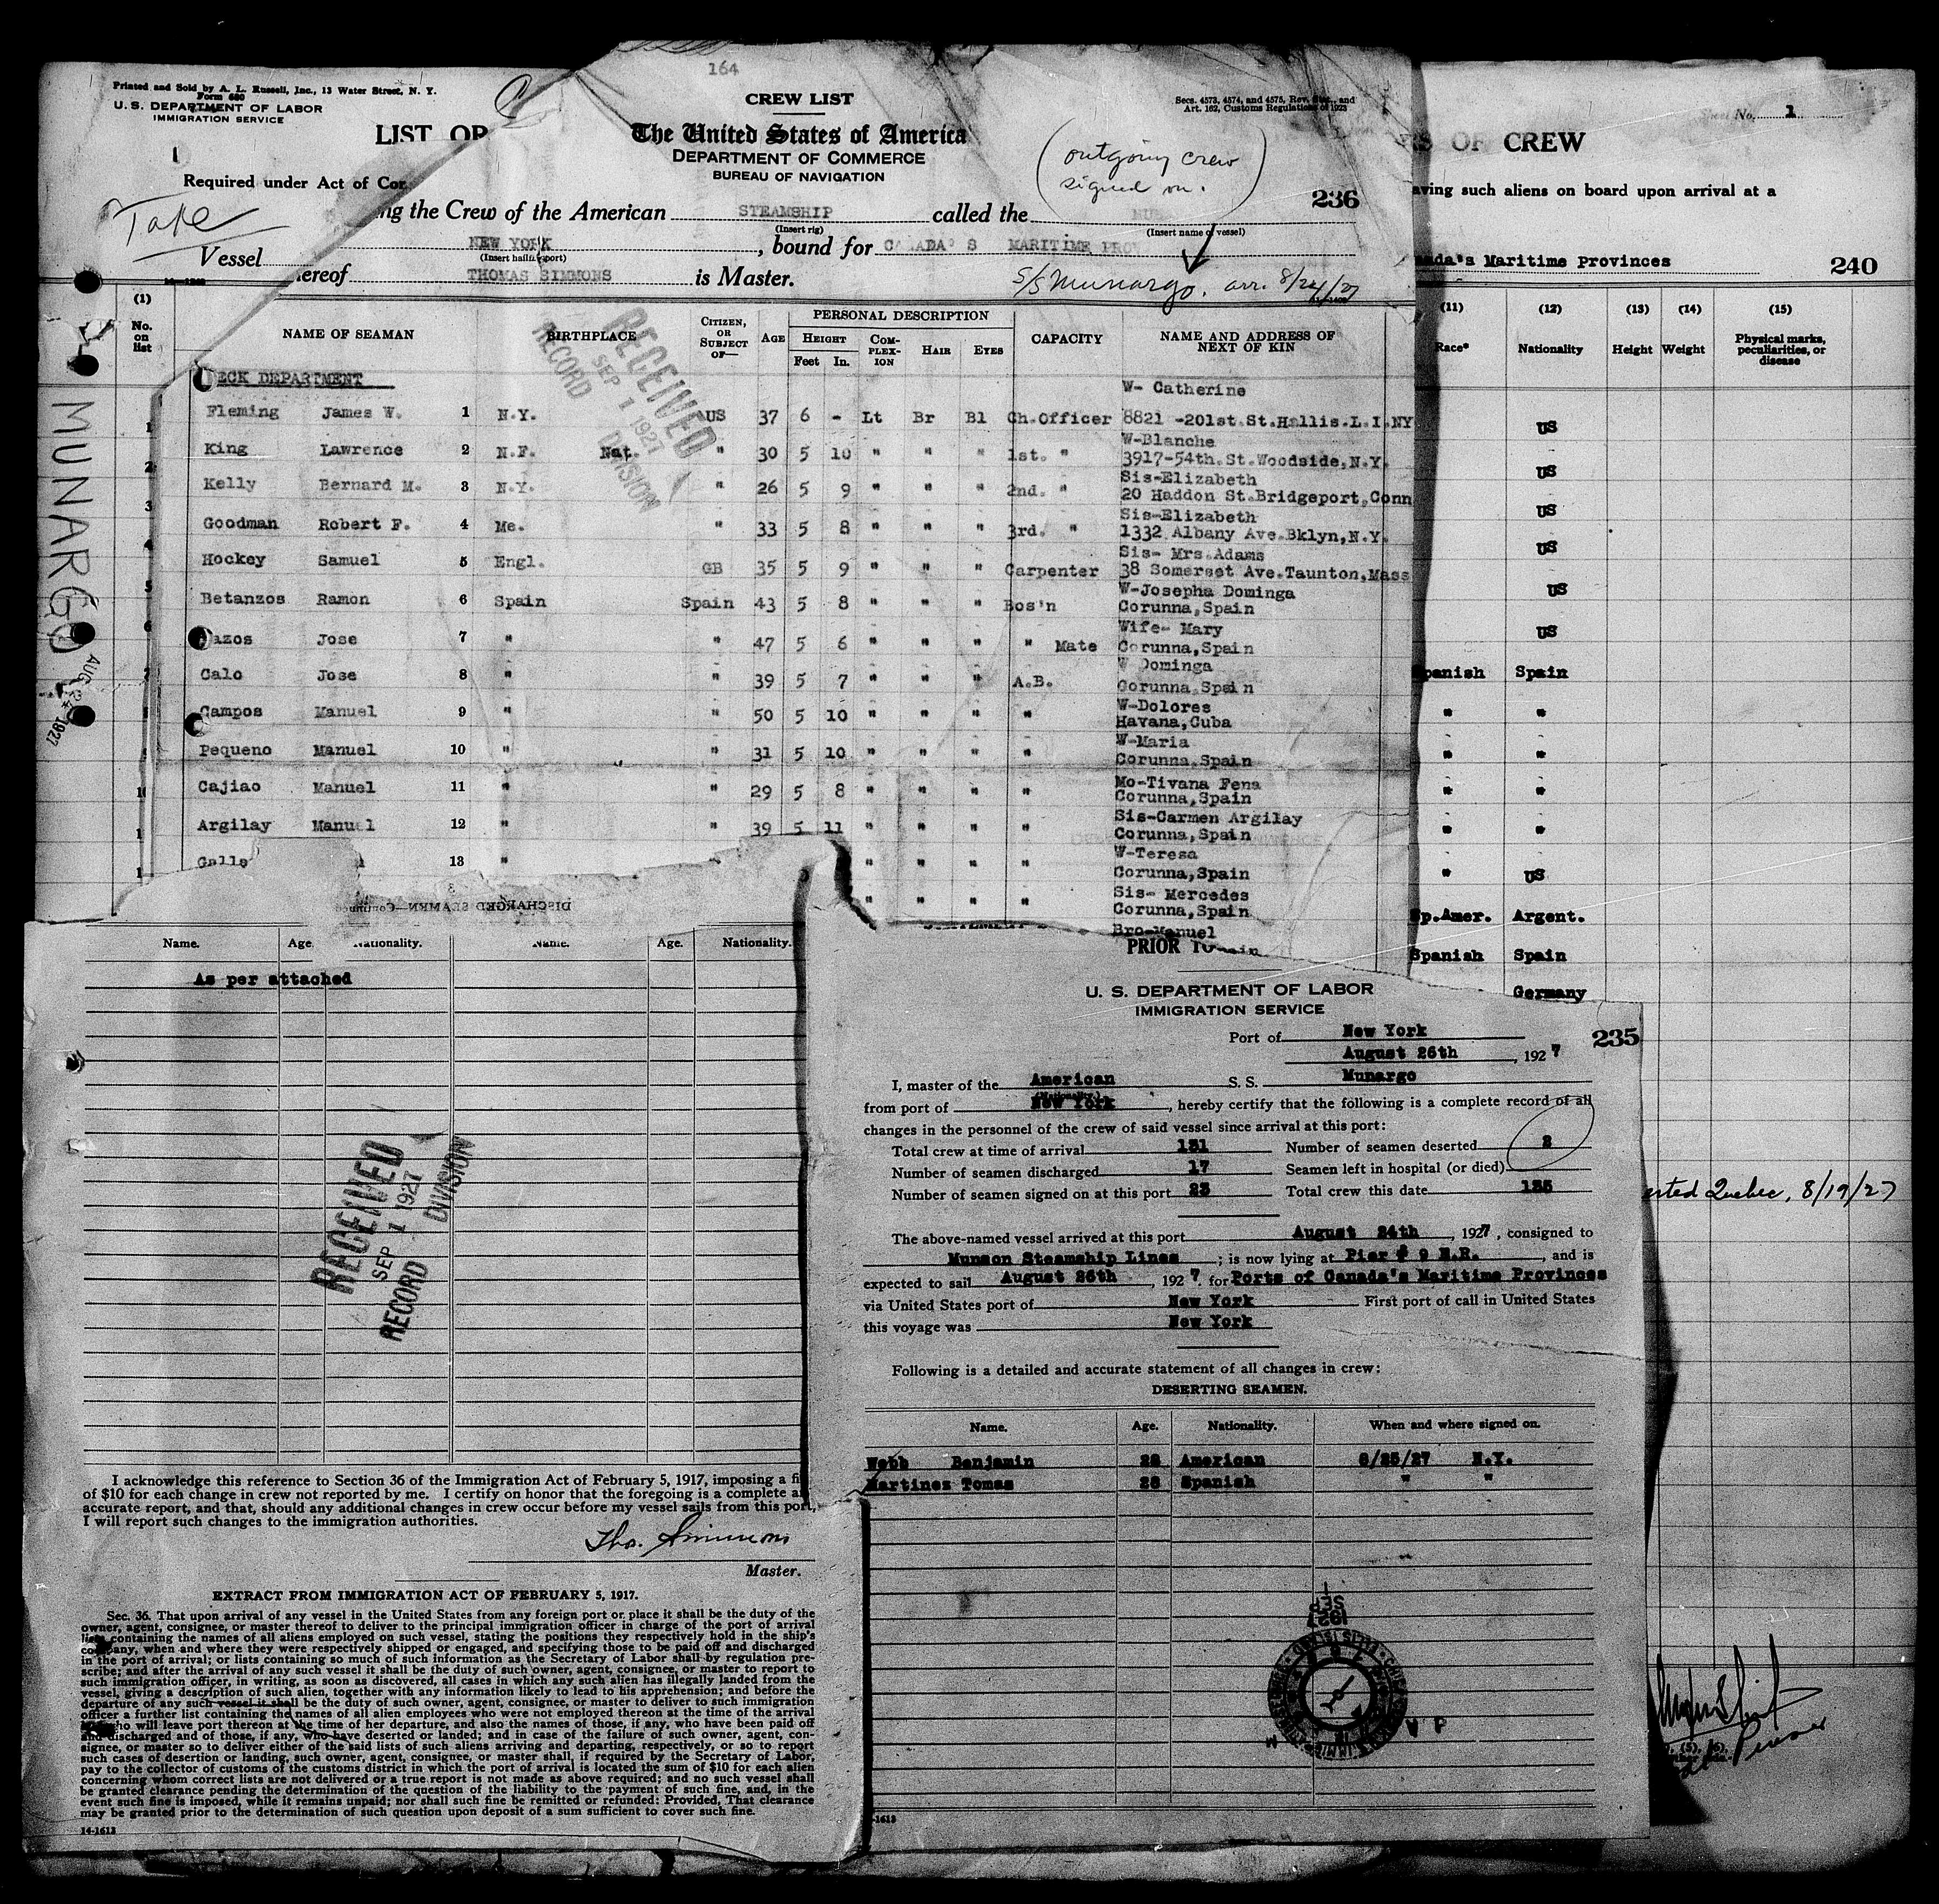 Printed and Sold by A. L. Russell, Inc., 13 Water Street, N. Y.
Form 680
U. S. DEPARTMENT OF LABOR
IMMIGRATION SERVICE
LIST OF
1
Required under Act of
Vessel
(1)
No. on list
MUNARGO
AUG 1927
164
CREW LIST
Secs. 4573, 4574, and 4575, Rev. and
Art. 162, Customs Regulations of 1923
The United States of America
DEPARTMENT OF COMMERCE
BUREAU OF NAVIGATION
(outgoing crew
signed on.)
236
the Crew of the American STEAMSHIP called the
(Insert rig) (Insert name of vessel)
NEW YORK, bound for CANADA'S MARITIME
(Insert hailing port)
THOMAS SIMMONS is Master.
S/S Munargo. arr. 8/24/27
NAME OF SEAMAN BIRTHPLACE CITIZEN, OR SUBJECT OF— AGE PERSONAL DESCRIPTION CAPACITY NAME AND ADDRESS OF NEXT OF KIN
HEIGHT COMPLEXION HAIR EYES
Feet In.
RECEIVED
SEP 1 1927
RECORD DIVISION
DECK DEPARTMENT
W- Catherine
Fleming James W. 1 N.Y. US 37 6 - Lt Br Bl Ch.Officer 8821 -201st.St.Hollis.L.I.NY
W-Blanche
King Lawrence 2 N.F. Nat. " 30 5 10 " " " 1st. " 3917-54th.St.Woodside,N.Y.
Sis-Elizabeth
Kelly Bernard M. 3 N.Y. " 26 5 9 " " " 2nd. " 20 Haddon St.Bridgeport,Conn
Sis-Elizabeth
Goodman Robert F. 4 Me. " 33 5 8 " " " 3rd. " 1332 Albany Ave.Bklyn,N.Y.
Sis- Mrs.Adams
Hockey Samuel 5 Engl. GB 35 5 9 " " " Carpenter 38 Somerset Ave.Taunton,Mass
W-Josepha Dominga
Betanzos Ramon 6 Spain Spain 43 5 8 " " " Bos'n Corunna,Spain
Wife- Mary
azos Jose 7 " " 47 5 6 " " " " Mate Corunna,Spain
W Dominga
Calo Jose 8 " " 39 5 7 " " " A.B. Corunna,Spain
W-Dolores
Campos Manuel 9 " " 50 5 10 " " " " Havana,Cuba
W-Maria
Pequeno Manuel 10 " " 31 5 10 " " " " Corunna,Spain
Mo-Tivana Fena
Cajiao Manuel 11 " " 29 5 8 " " " " Corunna,Spain
Sis-Carmen Argilay
Argilay Manuel 12 " " 39 5 11 " " " " Corunna,Spain
W-Teresa
13 " " " " " Corunna,Spain
Sis- Mercedes
" " " " Corunna,Spain
Bro-Manuel
No. 1
OF CREW
such aliens on board upon arrival at a
Maritime Provinces
240
(11) (12) (13) (14) (15)
Race* Nationality Height Weight Physical marks, peculiarities, or disease
US
US
US
US
US
US
Spanish Spain
" "
" "
" "
" "
" US
Sp.Amer. Argent.
Spanish Spain
Germany
Quebec, 8/19/27
DISCHARGED SEAMEN—Continued
Name. Age. Nationality. Name. Age. Nationality.
As per attached
RECEIVED
SEP 1 1927
RECORD DIVISION
I acknowledge this reference to Section 36 of the Immigration Act of February 5, 1917, imposing a
of $10 for each change in crew not reported by me. I certify on honor that the foregoing is a complete
accurate report, and that, should any additional changes in crew occur before my vessel sails from this port,
I will report such changes to the immigration authorities.
Tho. Simmons
Master.
EXTRACT FROM IMMIGRATION ACT OF FEBRUARY 5, 1917.
Sec. 36. That upon arrival of any vessel in the United States from any foreign port or place it shall be the duty of the
owner, agent, consignee, or master thereof to deliver to the principal immigration officer in charge of the port of arrival
lists containing the names of all aliens employed on such vessel, stating the positions they respectively hold in the ship's
company, when and where they were respectively shipped or engaged, and specifying those to be paid off and discharged
in the port of arrival; or lists containing so much of such information as the Secretary of Labor shall by regulation pre-
scribe; and after the arrival of any such vessel it shall be the duty of such owner, agent, consignee, or master to report to
such immigration officer, in writing, as soon as discovered, all cases in which any such alien has illegally landed from the
vessel, giving a description of such alien, together with any information likely to lead to his apprehension; and before the
departure of any such vessel it shall be the duty of such owner, agent, consignee, or master to deliver to such immigration
officer a further list containing the names of all alien employees who were not employed thereon at the time of the arrival
who will leave port thereon at the time of her departure, and also the names of those, if any, who have been paid off
and discharged and of those, if any, who have deserted or landed; and in case of the failure of such owner, agent, con-
signee, or master so to deliver either of the said lists of such aliens arriving and departing, respectively, or so to report
such cases of desertion or landing, such owner, agent, consignee, or master shall, if required by the Secretary of Labor,
pay to the collector of customs of the customs district in which the port of arrival is located the sum of $10 for each alien
concerning whom correct lists are not delivered or a true report is not made as above required; and no such vessel shall
be granted clearance pending the determination of the question of the liability to the payment of such fine, and, in the
event such fine is imposed, while it remains unpaid; nor shall such fine be remitted or refunded: Provided, That clearance
may be granted prior to the determination of such question upon deposit of a sum sufficient to cover such fine.
14-1613
PRIOR TO
U. S. DEPARTMENT OF LABOR
IMMIGRATION SERVICE
Port of New York
235
August 26th, 1927
I, master of the American S. S. Munargo
(Nationality.)
from port of New York, hereby certify that the following is a complete record of all
changes in the personnel of the crew of said vessel since arrival at this port:
Total crew at time of arrival 131 Number of seamen deserted 2
Number of seamen discharged 17 Seamen left in hospital (or died)
Number of seamen signed on at this port 23 Total crew this date 135
The above-named vessel arrived at this port August 24th, 1927, consigned to
Munson Steamship Lines; is now lying at Pier # 9 N.R., and is
expected to sail August 26th, 1927. for Ports of Canada's Maritime Provinces
via United States port of New York First port of call in United States
this voyage was New York
Following is a detailed and accurate statement of all changes in crew:
DESERTING SEAMEN.
Name. Age. Nationality. When and where signed on.
Webb Benjamin 28 American 8/25/27 N.Y.
Martinez Tomas 28 Spanish " "
1
SEP
1927
-1613